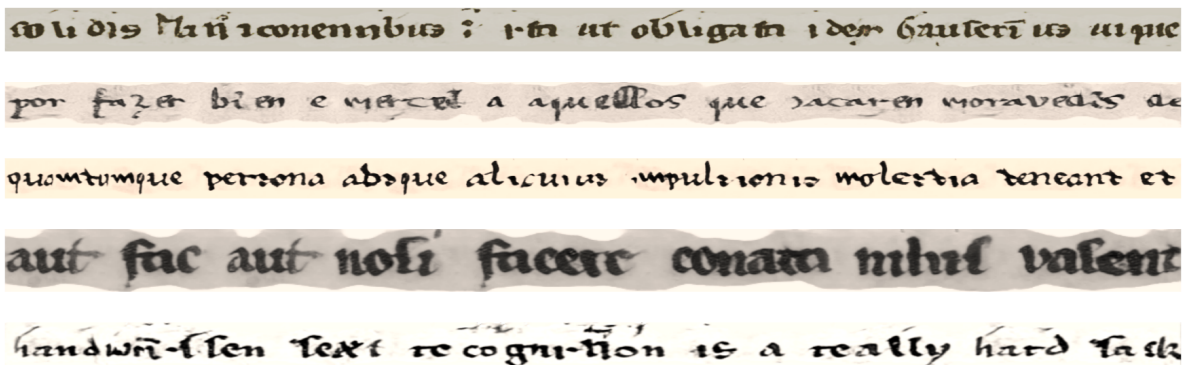 solidis iconenribus : ita ut obligati ides Gauserius uique
por fazer bien e merced a aquellos que sacaren moravedis de
quomtumque persona absque alicuius impulsionis molestia teneant et
aut fac aut noli facere conata nihil valent
handwritten text recognition is a really hard task